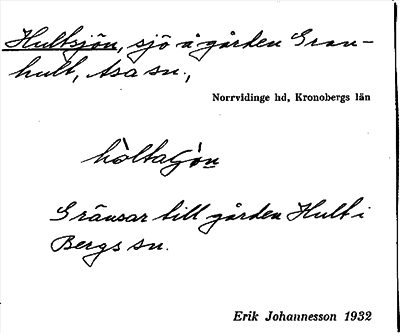 Hultsjön, sjö å gården Gran-
hult, Asa sn.,
Norrvidinge hd, Kronobergs län
Gränsar till gården Hult i
Bergs sn.
Erik Johannesson 1932